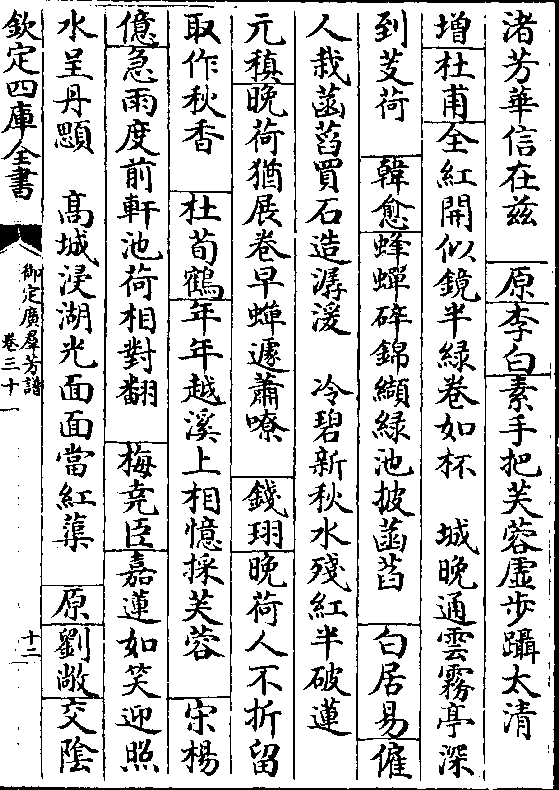 渚芳華信在兹　原李白素手把芙蓉虛步躡太清
增杜甫全紅開似鏡半緑卷如杯　城晚通雲霧亭深
到芰荷　韓愈蜂蟬碎錦纈緑池披菡萏　白居易僱
人栽菡萏買石造潺湲　冷碧新秋水殘紅半破蓮
元稹晚荷猶展卷早蟬遽蕭嘹　錢珝晚荷人不折留
取作秋香　杜荀鶴年年越溪上相憶採芙蓉　宋楊
億急雨度前軒池荷相對翻　梅堯臣嘉蓮如笑迎照
水呈丹顋　高城浸湖光面面當紅蕖　原劉敞交陰
欽定四庫全書
御定廣羣芳譜
卷三十一
十二